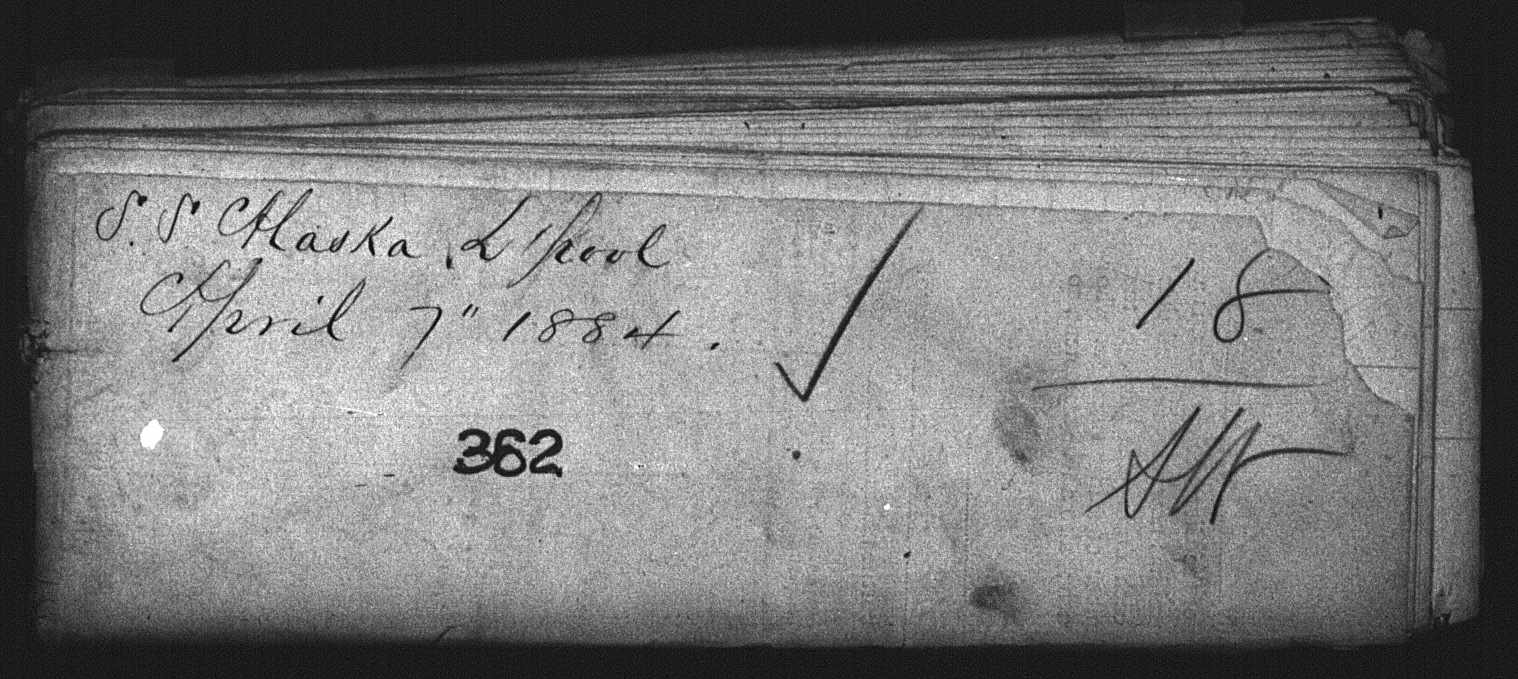 S.S Alaska, L'pool
April 7" 1884.
18
362